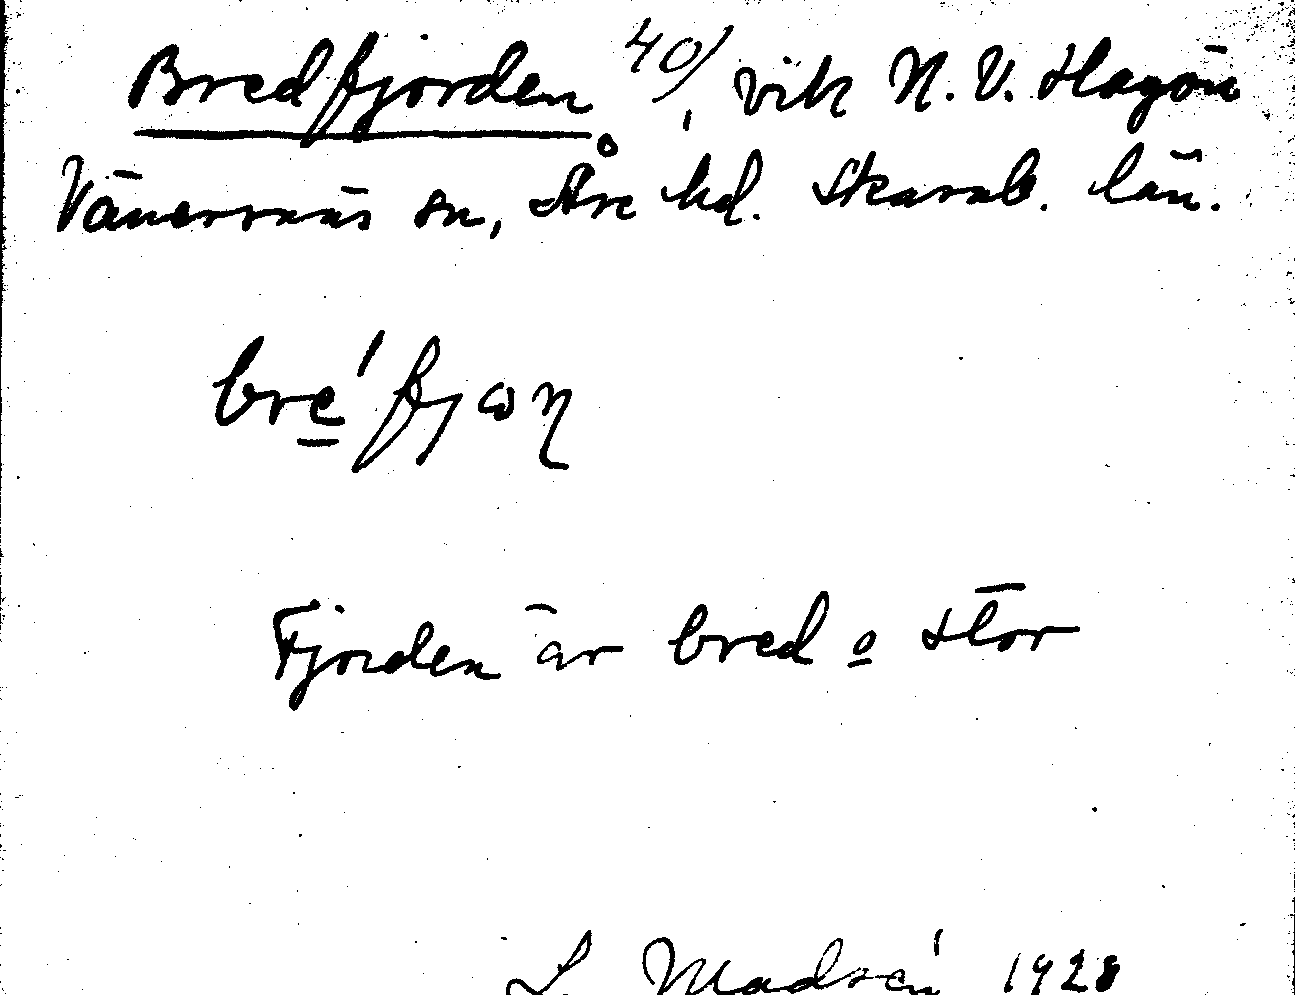 Bredfjorden 40/, vik N.V. Hagön
Vänersnäs sn, Åre hd. Skarab. län.
bre̲ʹfjωη
Fjorden är bred o̲ stor
S Madsén 1928